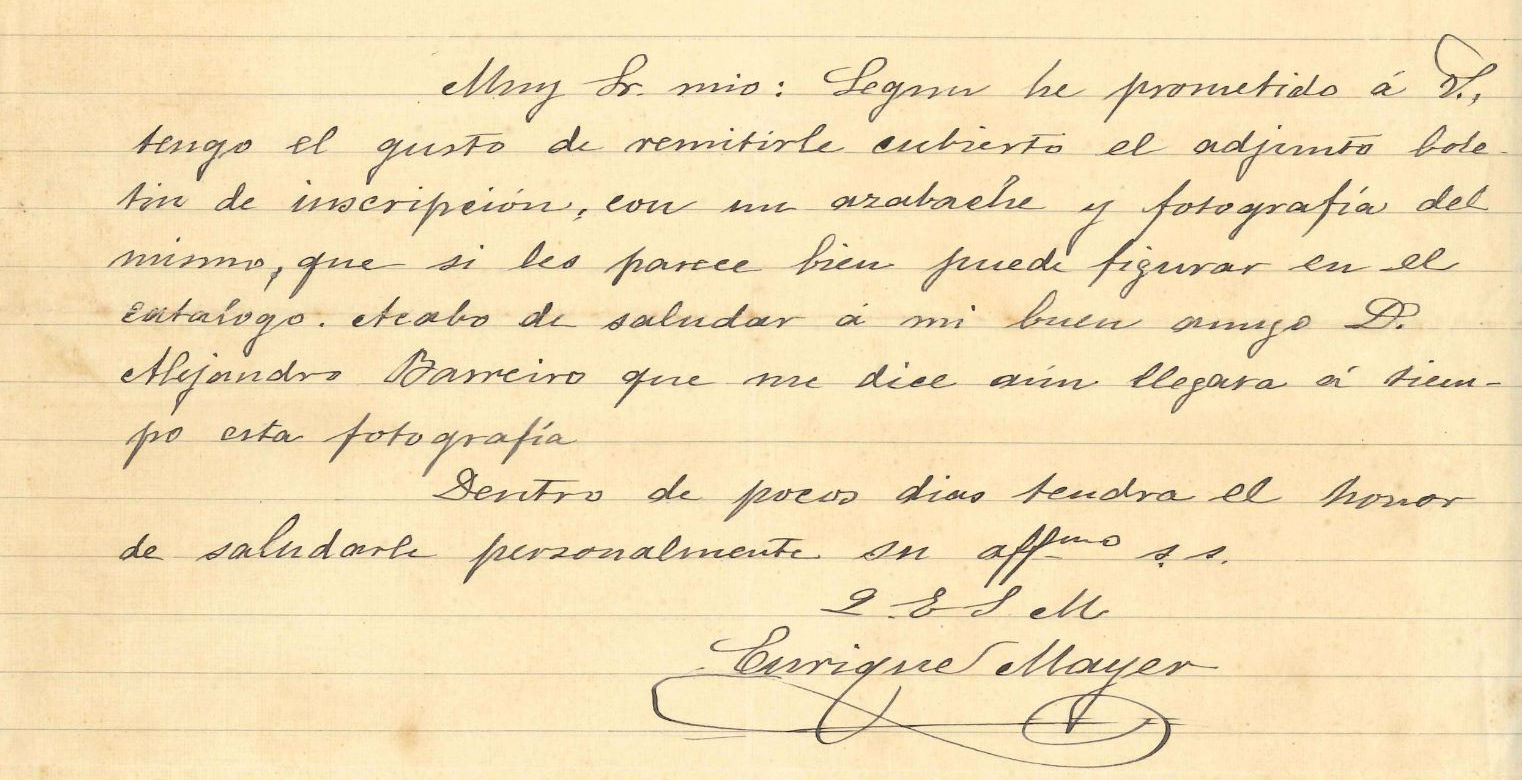 Muy Sr. mio: Segun he prometido á V.,
tengo el gusto de remitirle cubierto el adjunto bole-
tin de inscripción, con un azabache y fotografía del
mismo, que si les parece bien puede figurar en el
catalogo. Acabo de saludar á mi buen amigo D.
Alejandro Barreiro que me dice aún llegara á tiem-
po esta fotografía
Dentro de pocos dias tendra el honor
de saludarle personalmente su affmo s. s.
Q E S M
Enrique Mayer